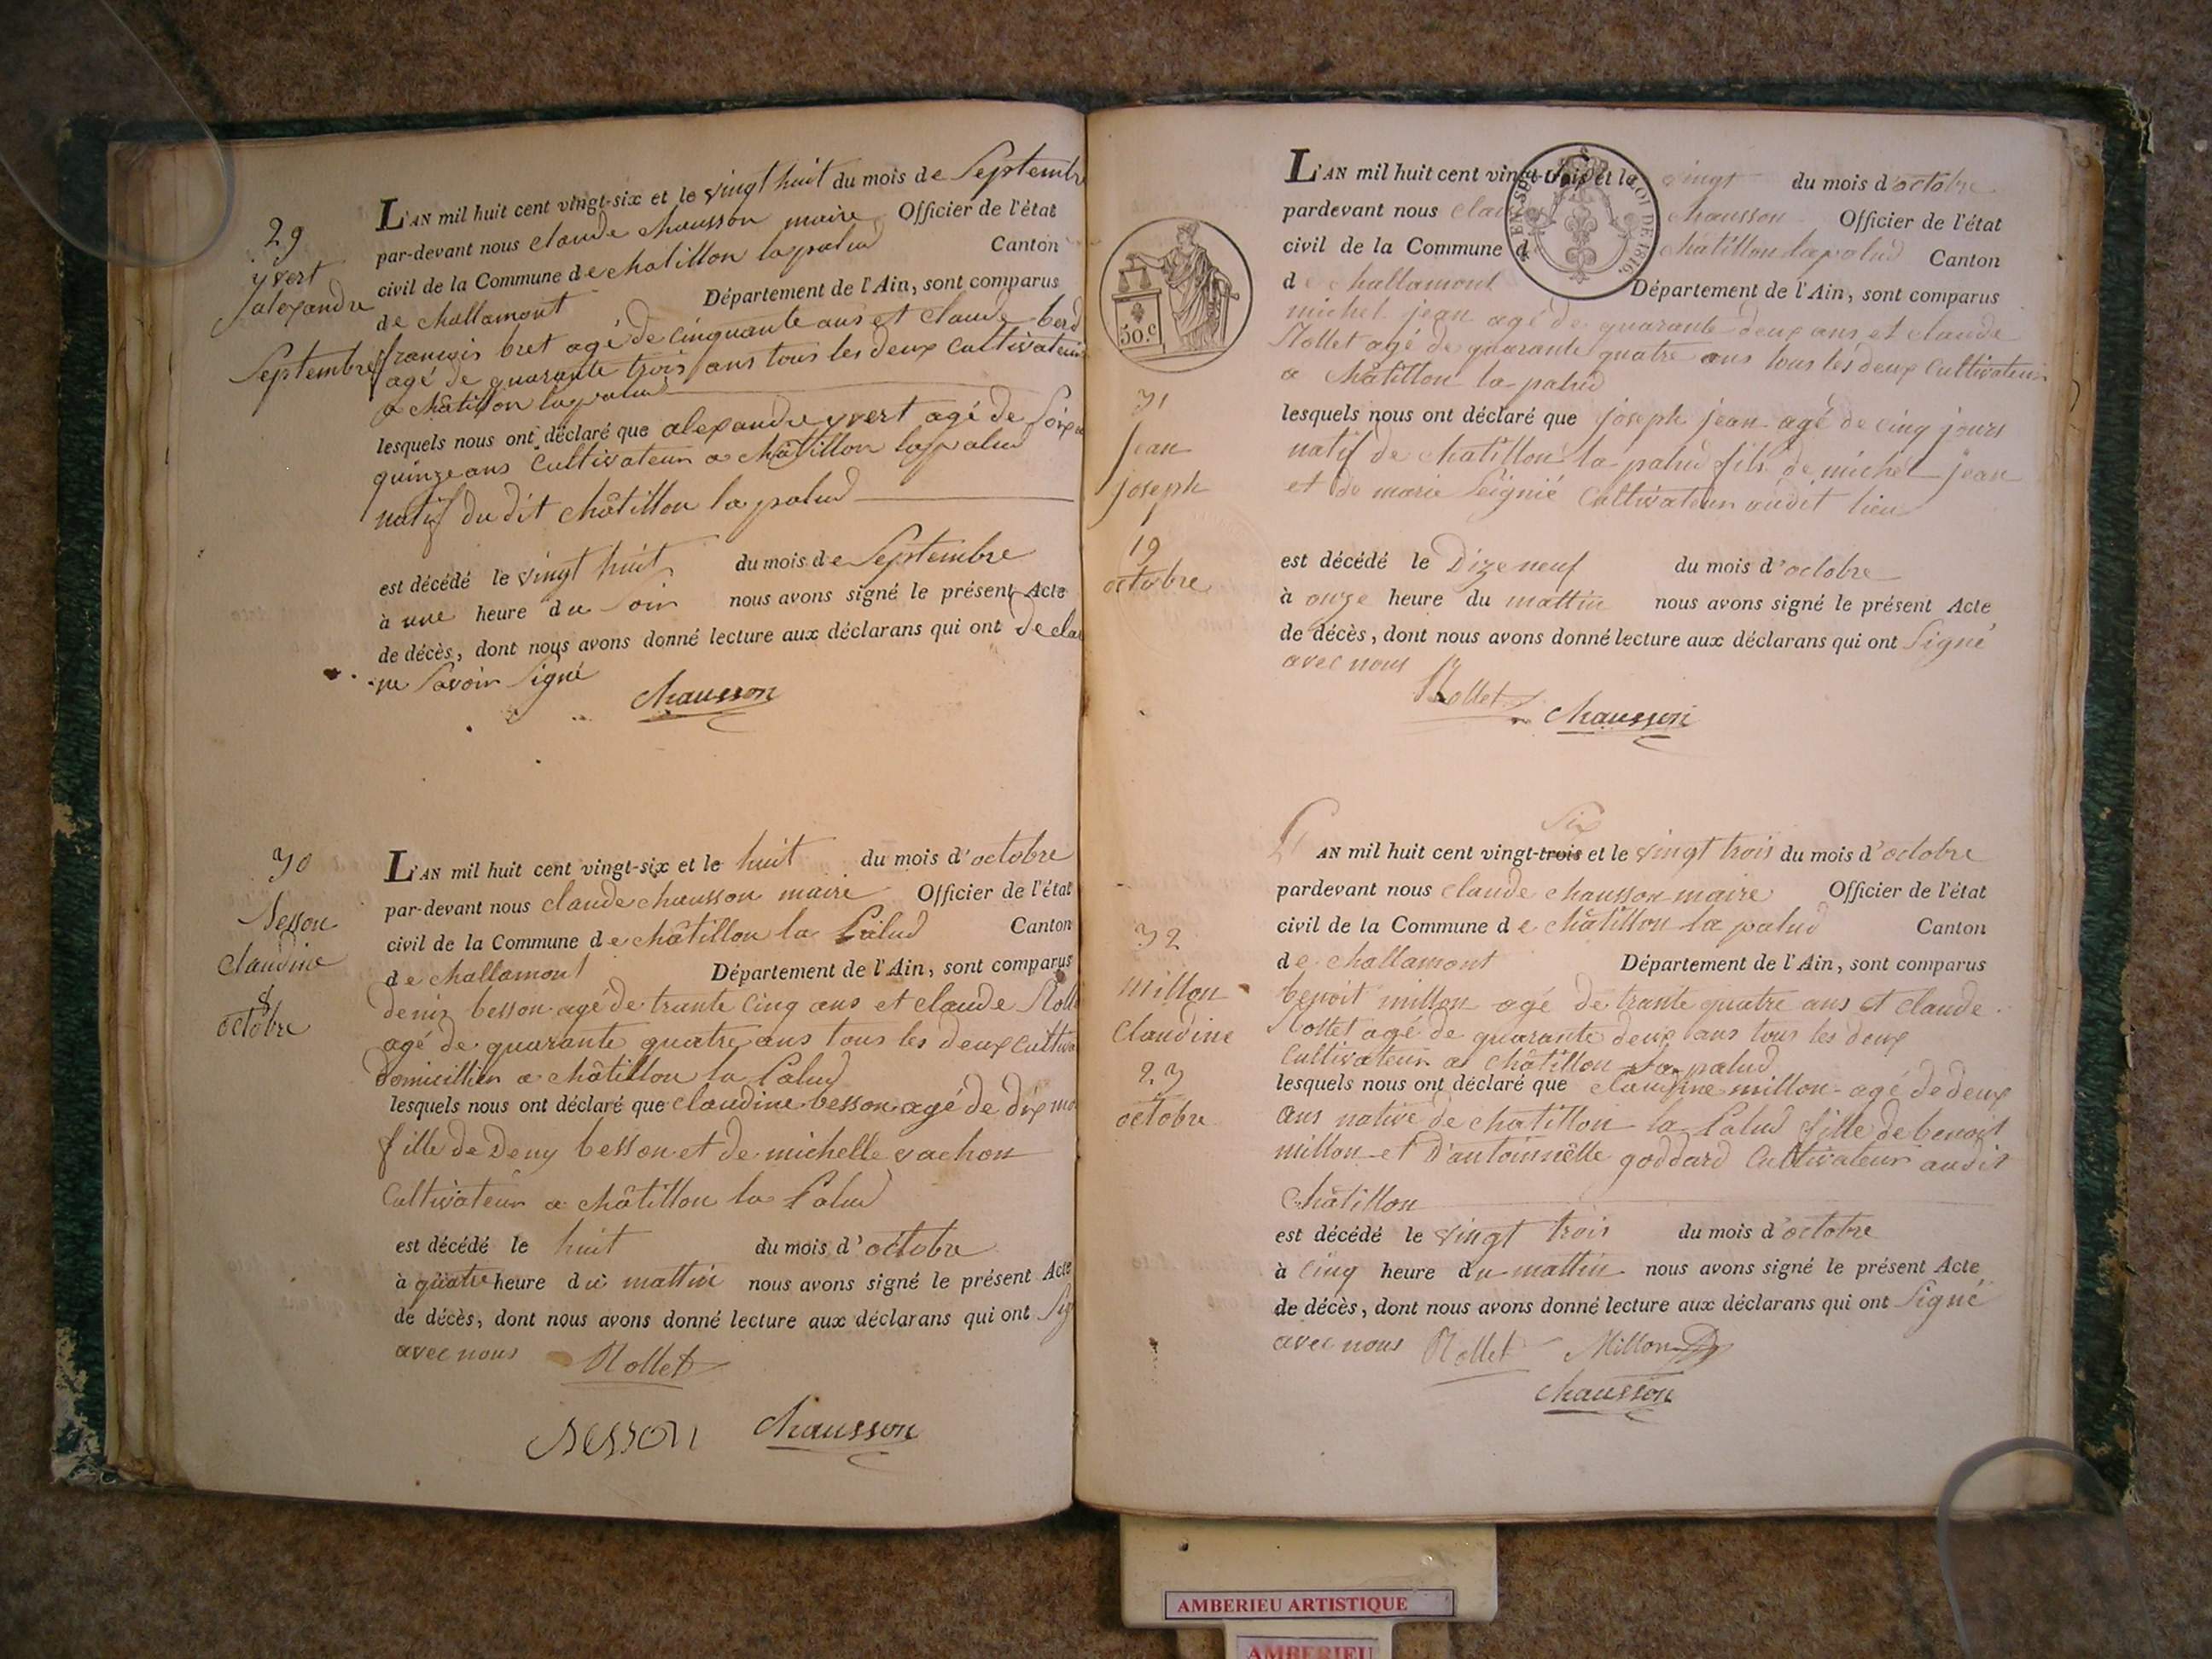 29
yvert
alexandre
Septembre
L'AN mil huit cent vingt-six et le vingt huit du mois de Septembre
par-devant nous claude chausson maire Officier de l'état
civil de la Commune de chatillon la palud Canton
de challamont Département de l'Ain, sont comparus
françois bret agé de cinquante ans et claude
agé de quarante trois ans tous les deux cultivateurs
a châtillon la palud
lesquels nous ont déclaré que alexandre yvert agé de
quinze ans cultivateur a châtillon la palud
natif du dit châtillon la palud
est décédé le vingt huit du mois de Septembre
à une heure du Soir nous avons signé le présent Acte
de décès, dont nous avons donné lecture aux déclarans qui ont
ne Savoir Signé
chausson
30
Besson
claudine
8
octobre
L'AN mil huit cent vingt-six et le huit du mois d'octobre
par-devant nous claude chausson maire Officier de l'état
civil de la Commune de châtillon la Palud Canton
de challamont Département de l'Ain, sont comparus
denis besson agé de trante cinq ans et claude
agé de quarante quatre ans tous les deux
domicillier a châtillon la Palud
lesquels nous ont déclaré que claudine besson agé de dix
fille de Deny besson et de michelle vachon
Cultivateur a châtillon la Palud
est décédé le huit du mois d'octobre
à quatre heure du mattin nous avons signé le présent Acte
de décès, dont nous avons donné lecture aux déclarans qui ont
avec nous Rollet
Besson chausson
50.c
LOI DE 1816.
31
jean
joseph
19
octobre
L'AN mil huit cent vingt-trois et le vingt du mois d'octobre
pardevant nous chausson Officier de l'état
civil de la Commune d châtillon la palud Canton
de challamont Département de l'Ain, sont comparus
michel jean agé de quarante deux ans et claude
Rollet agé de quarante quatre ans tous les deux cultivateur
a châtillon la palud
lesquels nous ont déclaré que joseph jean agé de cinq jours
natif de chatillon la palud fils de michel jean
et de marie Seignié Cultivateur audit lieu
est décédé le Dizeneuf du mois d'octobre
à onze heure du mattin nous avons signé le présent Acte
de décès, dont nous avons donné lecture aux déclarans qui ont Signé
avec nous
Rollet chausson
32
millon
claudine
23
octobre
Six
L'AN mil huit cent vingt-trois et le vingt trois du mois d'octobre
pardevant nous claude chausson maire Officier de l'état
civil de la Commune de châtillon la palud Canton
de challamont Département de l'Ain, sont comparus
benoit millon agé de trante quatre ans et claude
Rollet agé de quarante deux ans tous les deux
Cultivateur a châtillon la palud
lesquels nous ont déclaré que claudine millon agé de deux
ans native de chatillon la Palud fille de benoit
millon et D'antoinnette goddard Cultivateur audit
Châtillon
est décédé le vingt trois du mois d'octobre
à cinq heure du mattin nous avons signé le présent Acte
de décès, dont nous avons donné lecture aux déclarans qui ont Signé
avec nous Rollet Millon
chausson
AMBERIEU ARTISTIQUE
AMBERIEU